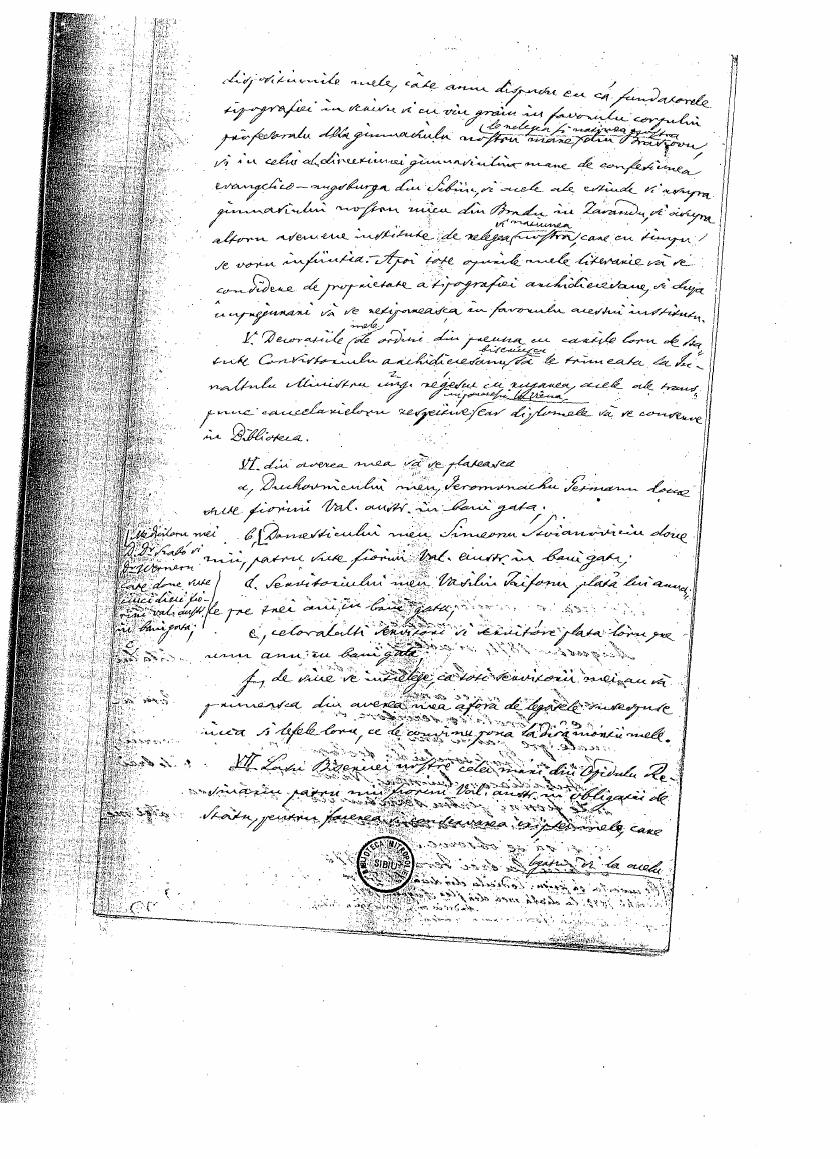 dispositiunile mele, câte amu dispusu eu ca fundatorele
tipografiei in scrisu si cu viu graiu in favorulu corpului
profesoralu dela gimnasiulu nostru mare din Brasiovu,
de relegea si natiunea nostra
si in celu alu directiunei gimnasiului mare de confesiunea
evangelico-augsburga din Sebiiu, si acele ale estinde si asupra
gimnasiului nostru micu din Bradu in Zarandu, si asupra
altoru asemene institute de relegea nostra, care cu timpu
si natiunea
se voru infiintia. Apoi tote opurile mele literarie sa se
considere de proprietate a tipografiei archidiecesane, si dupa
impregiurari sa se retipareasca in favorulu acestui institutu.
V. Decoratiile mele de ordini din preuna cu cartile loru de sta-
tute Consistoriulu archidiecesanu sa le trimeata la In-
bisericescu
naltulu Ministru ung. regescu cu rugarea, acele ale trans-
pune cancelarieloru respective, ear diplomele sa se conserve
in Biblioteca.
VI. din averea mea sa se plateasca
a, Duchovnicului meu, Ieromonachu Germanu doue
sute fiorini Val. austr. in bani gata;
b, Domesticului meu Simeonu Stoianoviciu doue
mii, patru sute fiorini Val. austr. in bani gata;
Mediciloru mei
D. Dr Szabo si
Dr Wernern
cate doue sute
cinci dieci fio-
rini val. austr.
in bani gata;
d. Servitoriului meu Vasiliu Trifonu plata lui anua-
le pre trei ani in bani gata;
e, celoralalti servitori si servitóre plata loru pre
unu anu in bani gata.
f, de sine se intielege, ca toti servitorii mei au sa
primeasca din averea mea afora de legatele susespuse
inca si lefele loru, ce le convinu pona la diua mortii mele.
VII. Lasu Bisericei nostre celei mari din Opidulu Re-
sinariu patru mii fiorini Val. austr. in obligatii de
Statu, pentru facerea si conservarea criptei mele, care
BIBLIOTECA MITROPOLIEI
SIBIU